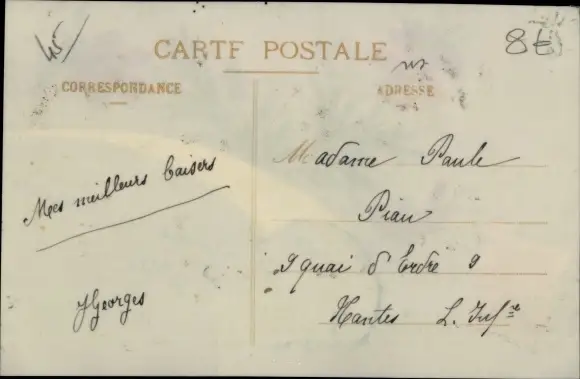 45
CARTE POSTALE
8€
CORRESPONDANCE
ADRESSE
Madame Paule
Mes meilleurs baisers
Piau
9 quai d'Erdre 9
JGeorges
Nantes L. Infre